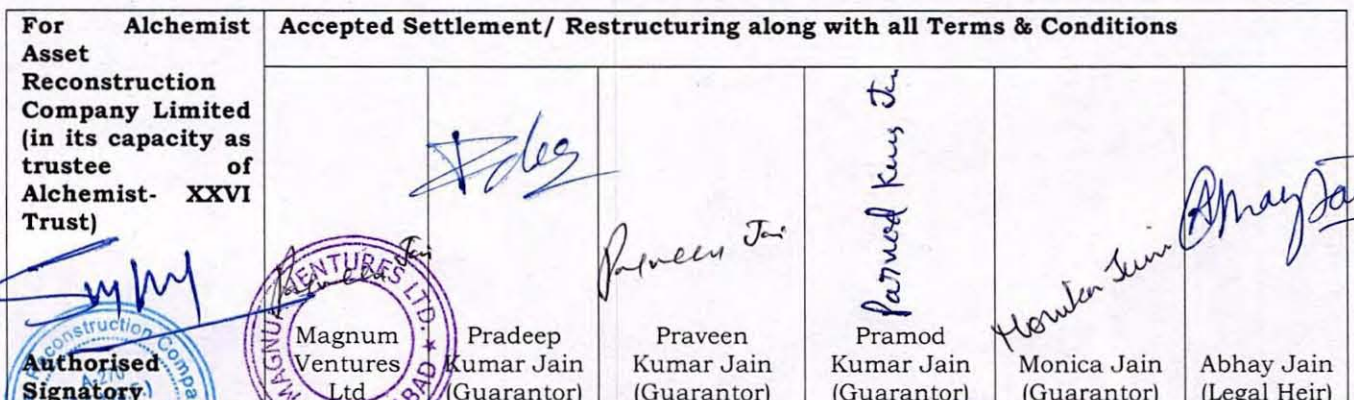 For Alchemist
Asset
Reconstruction
Company Limited
(in its capacity as
trustee of
Alchemist- XXVI
Trust)
Authorised
Signatory
Accepted Settlement/ Restructuring along with all Terms & Conditions
Magnum
Ventures
Ltd
Pradeep
Kumar Jain
(Guarantor)
Praveen Jai
Praveen
Kumar Jain
(Guarantor)
Parmod
Pramod
Kumar Jain
(Guarantor)
Monika Jain
Monica Jain
(Guarantor)
Abhay Ja
Abhay Jain
(Legal Heir)
MAGNU
VENTURES LTD. ★
BAD
construction Compa